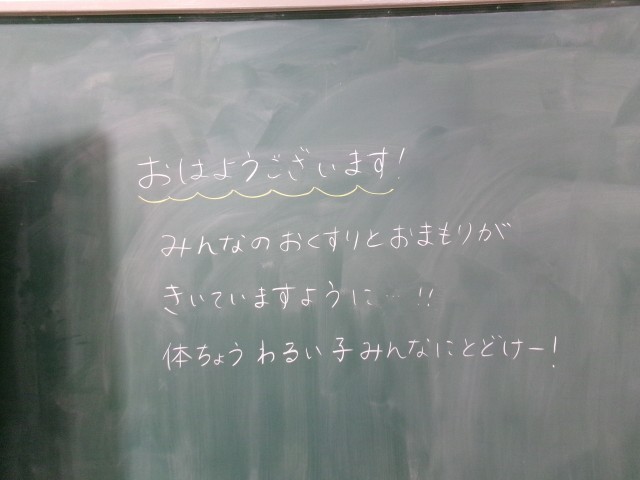 おはようございます!
みんなのおくすりとおまもりが
きいていますように…!!
体ちょうわるい子みんなにとどけー!